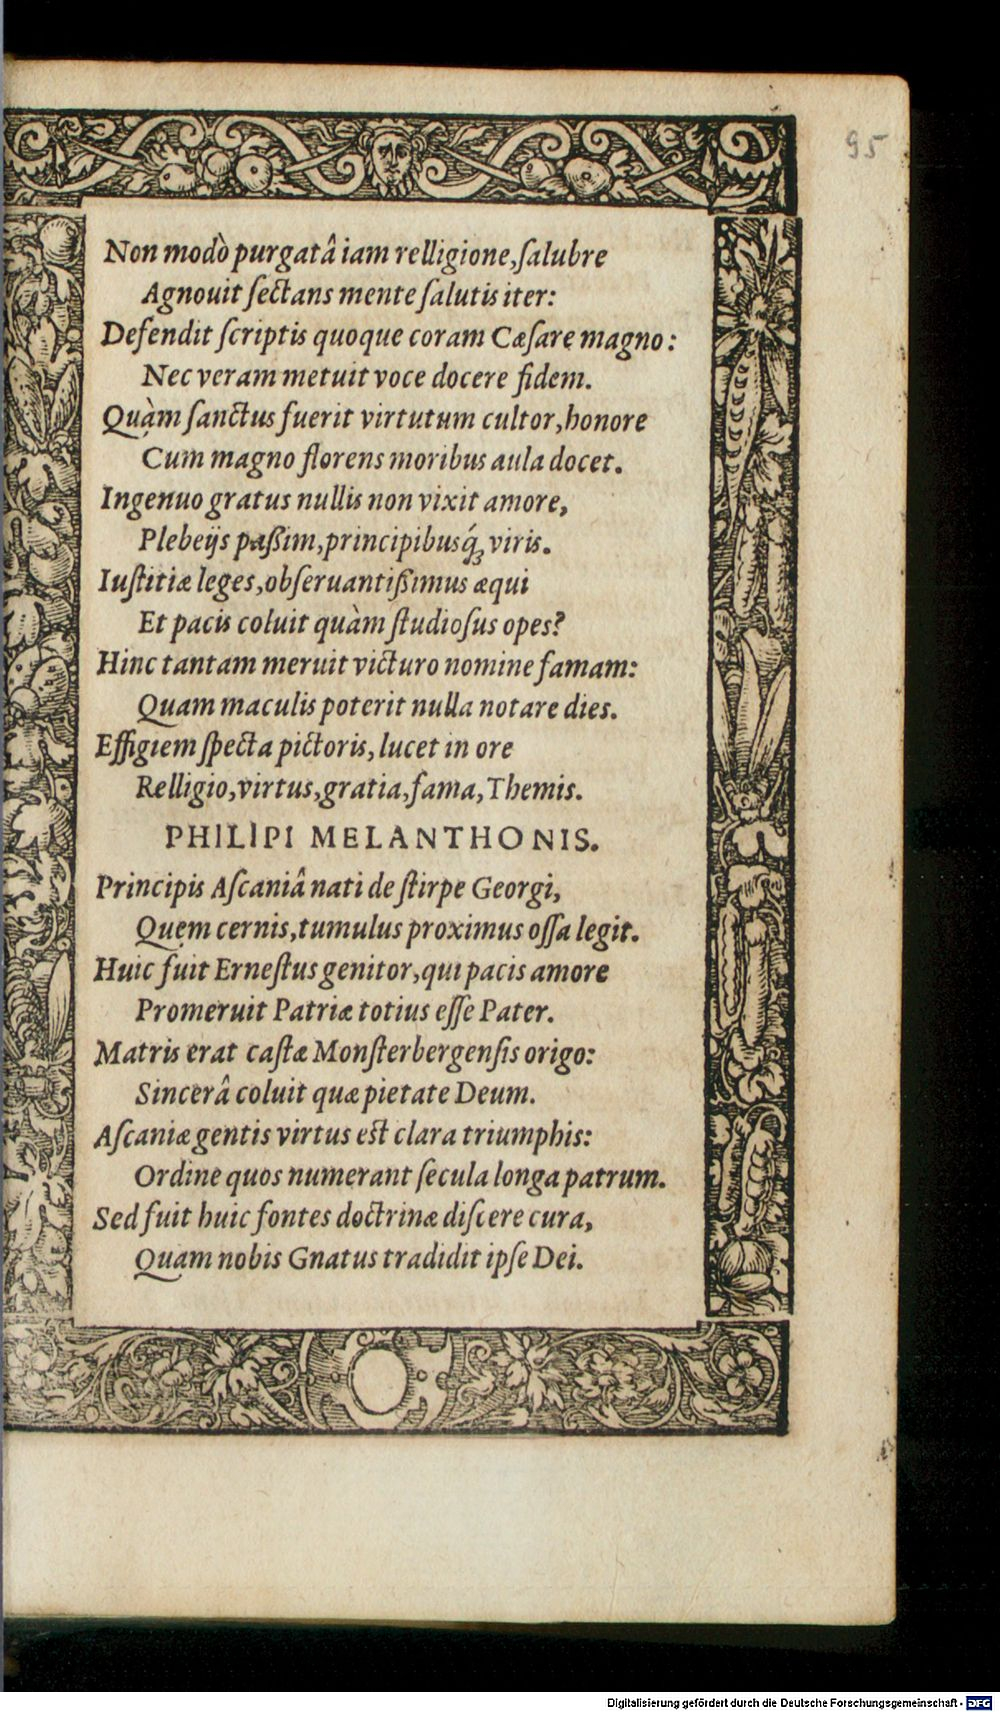 95
Non modò purgatâ iam relligione, salubre
Agnouit sectans mente salutis iter:
Defendit scriptis quoque coram Cæsare magno:
Nec veram metuit voce docere fidem.
Quàm sanctus fuerit virtutum cultor, honore
Cum magno florens moribus aula docet.
Ingenuo gratus nullis non vixit amore,
Plebeijs paßim, principibusq́ꝫ viris.
Iustitiæ leges, obseruantißimus æqui
Et pacis coluit quàm studiosus opes?
Hinc tantam meruit victuro nomine famam:
Quam maculis poterit nulla notare dies.
Effigiem specta pictoris, lucet in ore
Relligio, virtus, gratia, fama, Themis.
PHILIPI MELANTHONIS.
Principis Ascaniâ nati de stirpe Georgi,
Quem cernis, tumulus proximus ossa legit.
Huic fuit Ernestus genitor, qui pacis amore
Promeruit Patriæ totius esse Pater.
Matris erat castæ Monsterbergensis origo:
Sincerâ coluit quæ pietate Deum.
Ascaniæ gentis virtus est clara triumphis:
Ordine quos numerant secula longa patrum.
Sed fuit huic fontes doctrinæ discere cura,
Quam nobis Gnatus tradidit ipse Dei.
Digitalisierung gefördert durch die Deutsche Forschungsgemeinschaft - DFG